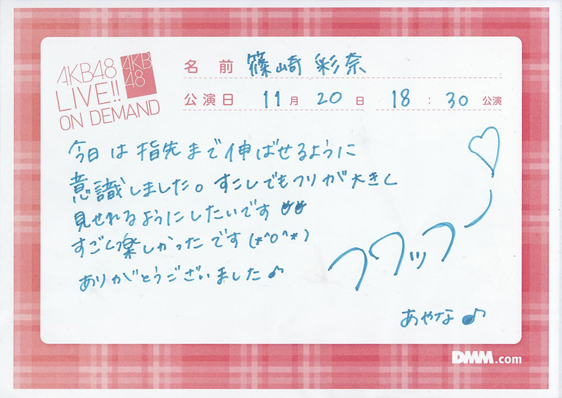 AKB48
LIVE!!
ON DEMAND
AKB
48
名前 篠崎 彩奈
公演日 11月 20日 18:30 公演
今日は指先まで伸ばせるように
意識しました。すこしでもフリが大きく
見せれるようにしたいです
すごく楽しかったです(*^o^*)
ありがとうございました♪
フワッフー
あやな♪
DMM.com